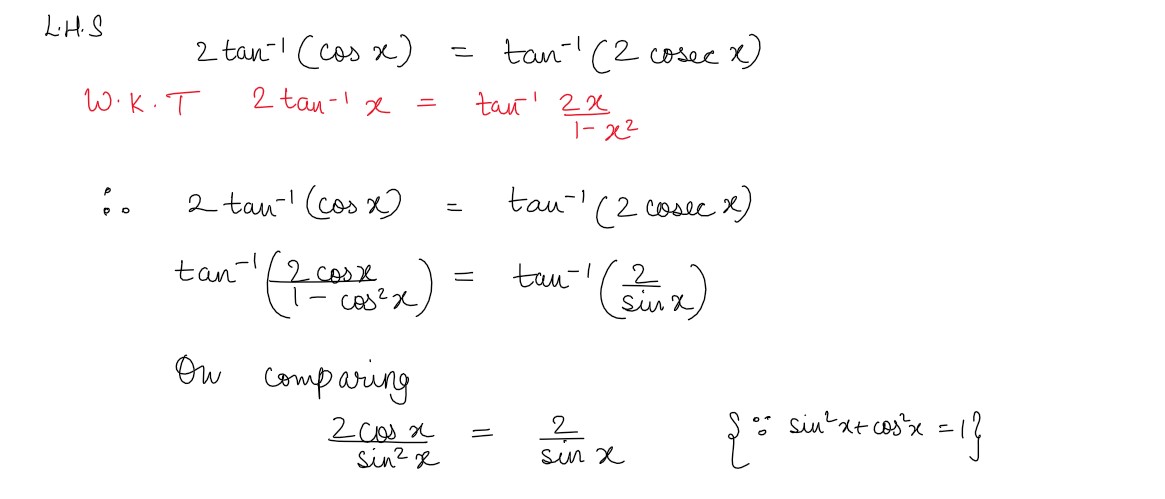 L.H.S
2 tan⁻¹ (cos x) = tan⁻¹ (2 cosec x)
W.K.T 2 tan⁻¹ x = tan⁻¹ 2x/1-x²
∴ 2 tan⁻¹ (cos x) = tan⁻¹ (2 cosec x)
tan⁻¹ (2 cos x/1 - cos² x) = tan⁻¹ (2/sin x)
On comparing
2 cos x/sin² x = 2/sin x {∵ sin² x + cos² x = 1}